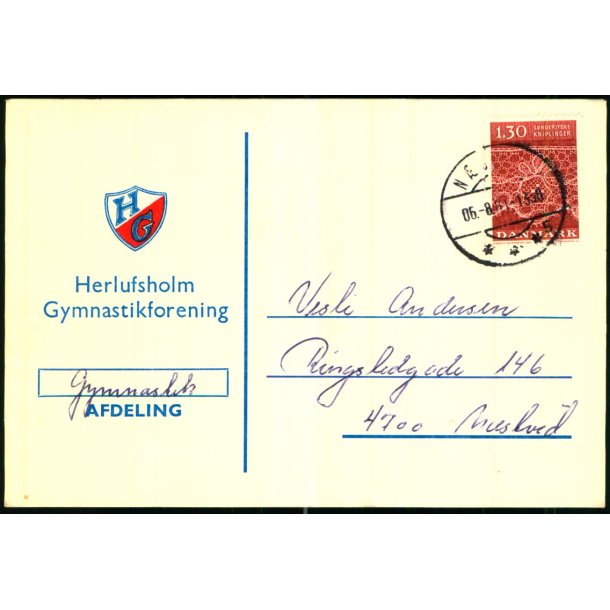 HG
Herlufsholm
Gymnastikforening
Gymnastik
AFDELING
1.30 SØNDERJYSKE
KNIPLINGER
DANMARK
NÆ
06.-8. 1530
5
Vesli Andersen
Ringstedgade 146
4700 Næstved